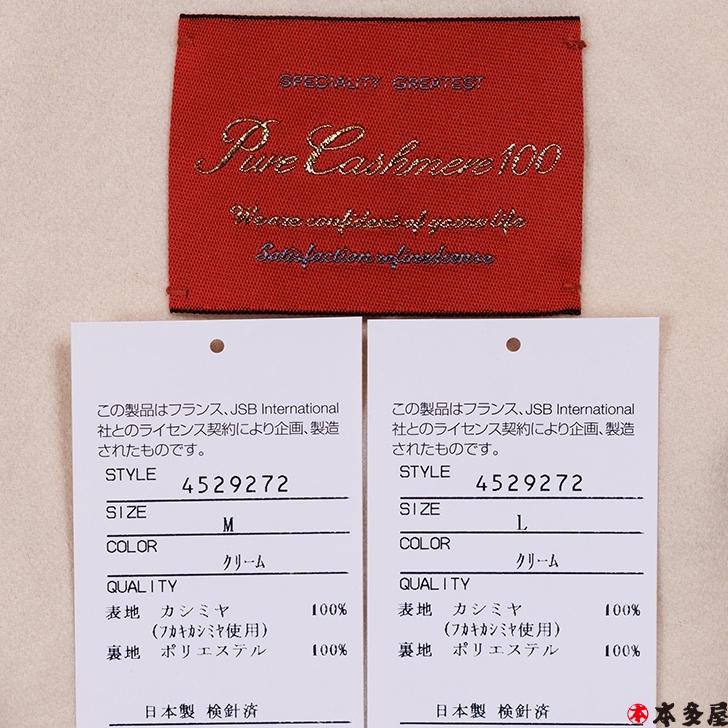 SPECIALITY GREATEST
Pure Cashmere 100
We are confident of yours life
Satisfaction refinedsense
この製品はフランス、JSB International
社とのライセンス契約により企画、製造
されたものです。
STYLE 4529272
SIZE M
COLOR クリーム
QUALITY
表地 カシミヤ 100%
(フカキカシミヤ使用)
裏地 ポリエステル 100%
日本製 検針済
この製品はフランス、JSB International
社とのライセンス契約により企画、製造
されたものです。
STYLE 4529272
SIZE L
COLOR クリーム
QUALITY
表地 カシミヤ 100%
(フカキカシミヤ使用)
裏地 ポリエステル 100%
日本製 検針済
本 本多屋